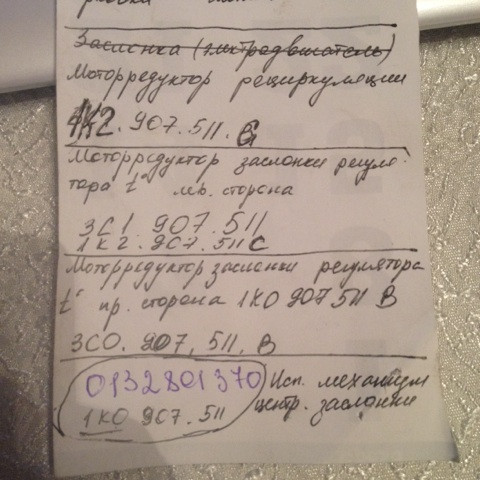 Заслонка (электродвигатель)
Моторредуктор рециркуляции
1K2. 907. 511. G
Моторредуктор заслонки регуля-
тора t° лв. сторона
3C1. 907. 511
1K2. 907. 511 C
Моторредуктор заслонки регулятора
t° пр. сторона 1K0 907 511 B
3C0. 907. 511. B
0132801370 Исп. механизм
1K0 907. 511 центр. заслонки